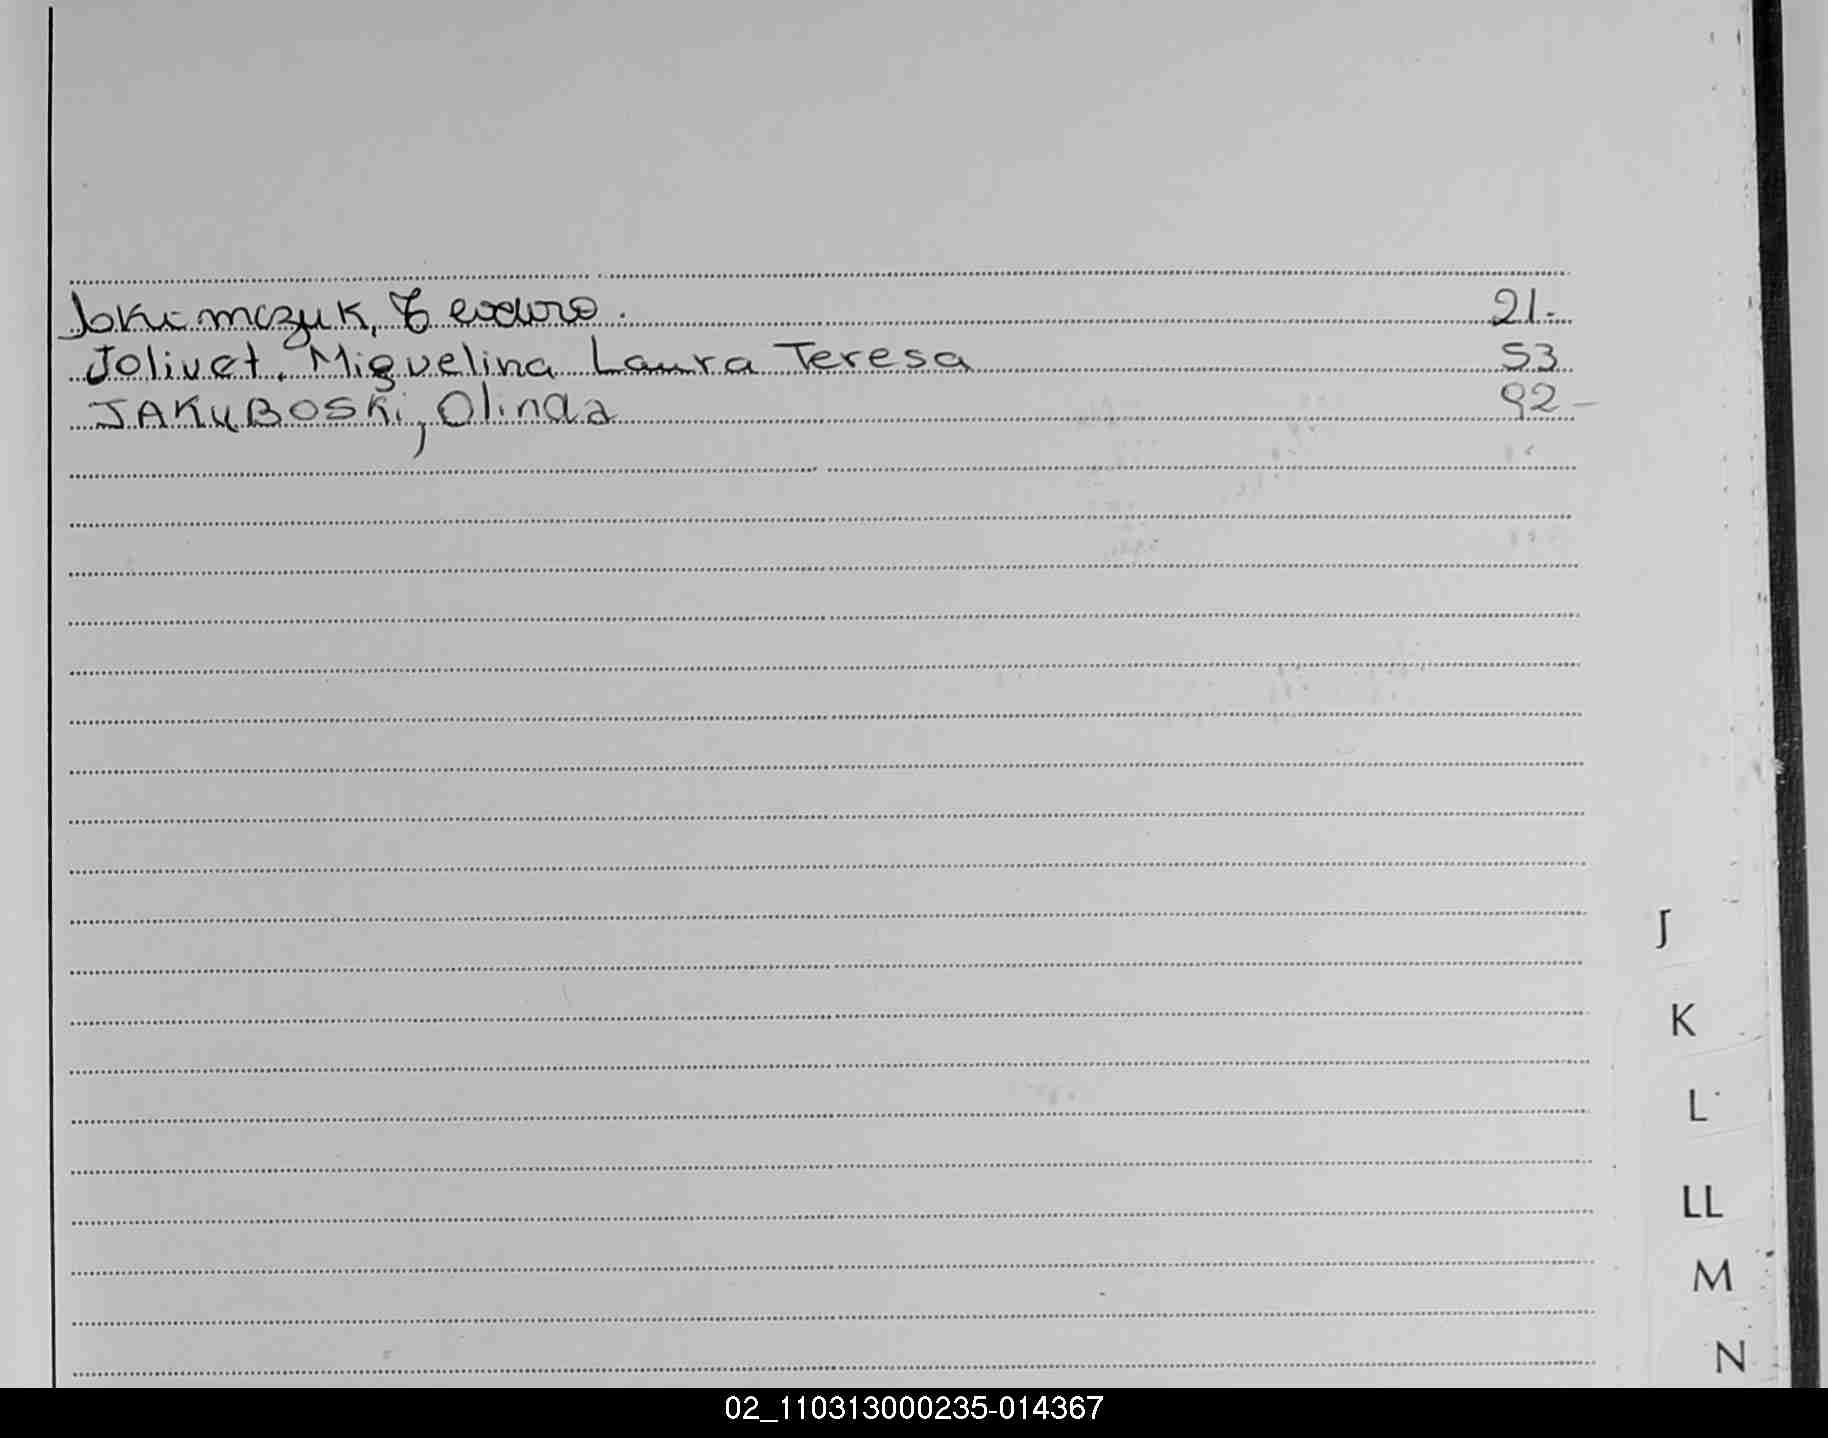 Jokimczuk, Teodoro. 21.-
Jolivet, Miguelina Laura Teresa 53
JAKUBOSKi, Olinda 92-
J
K
L
LL
M
N
02_110313000235-014367